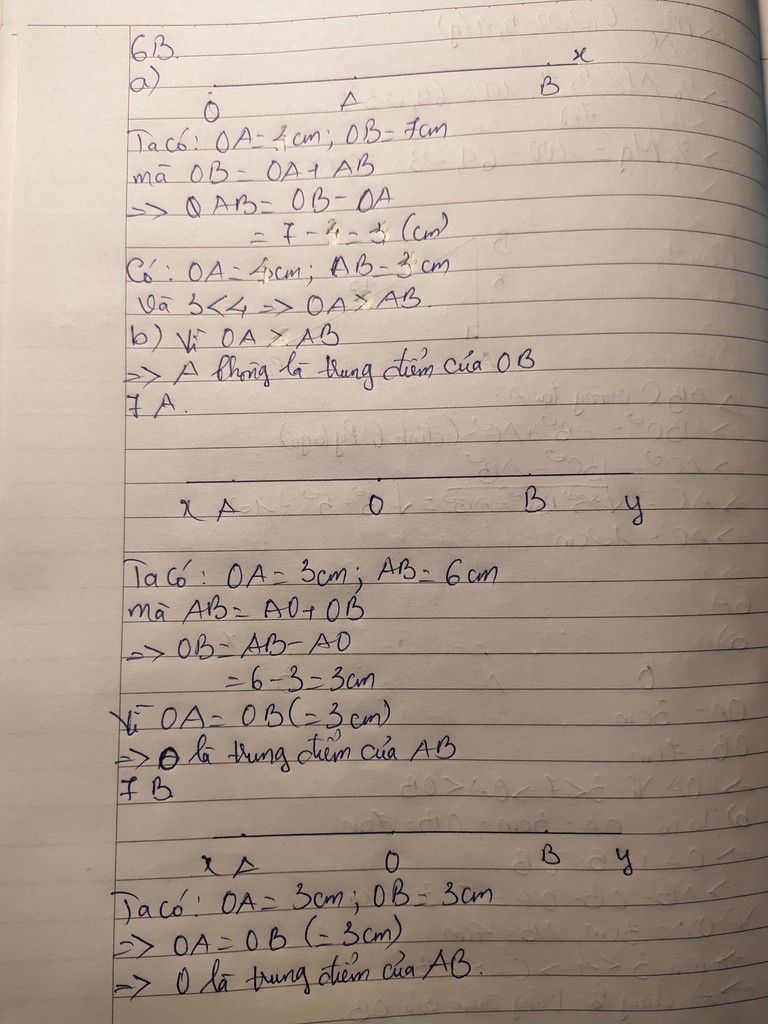 6B.
a)
O A B x
Ta có: OA = 4cm; OB = 7cm
mà OB = OA + AB
=> AB = OB - OA
= 7 - 4 = 3 (cm)
Có: OA = 4cm; AB = 3cm
Và 3 < 4 => OA > AB.
b) Vì OA > AB
=> A không là trung điểm của OB
7 A.
x A O B y
Ta có: OA = 3cm; AB = 6cm
mà AB = AO + OB
=> OB = AB - AO
= 6 - 3 = 3cm
Vì OA = OB (= 3cm)
=> O là trung điểm của AB
7 B
x A O B y
Ta có: OA = 3cm; OB = 3cm
=> OA = OB (= 3cm)
=> O là trung điểm của AB.